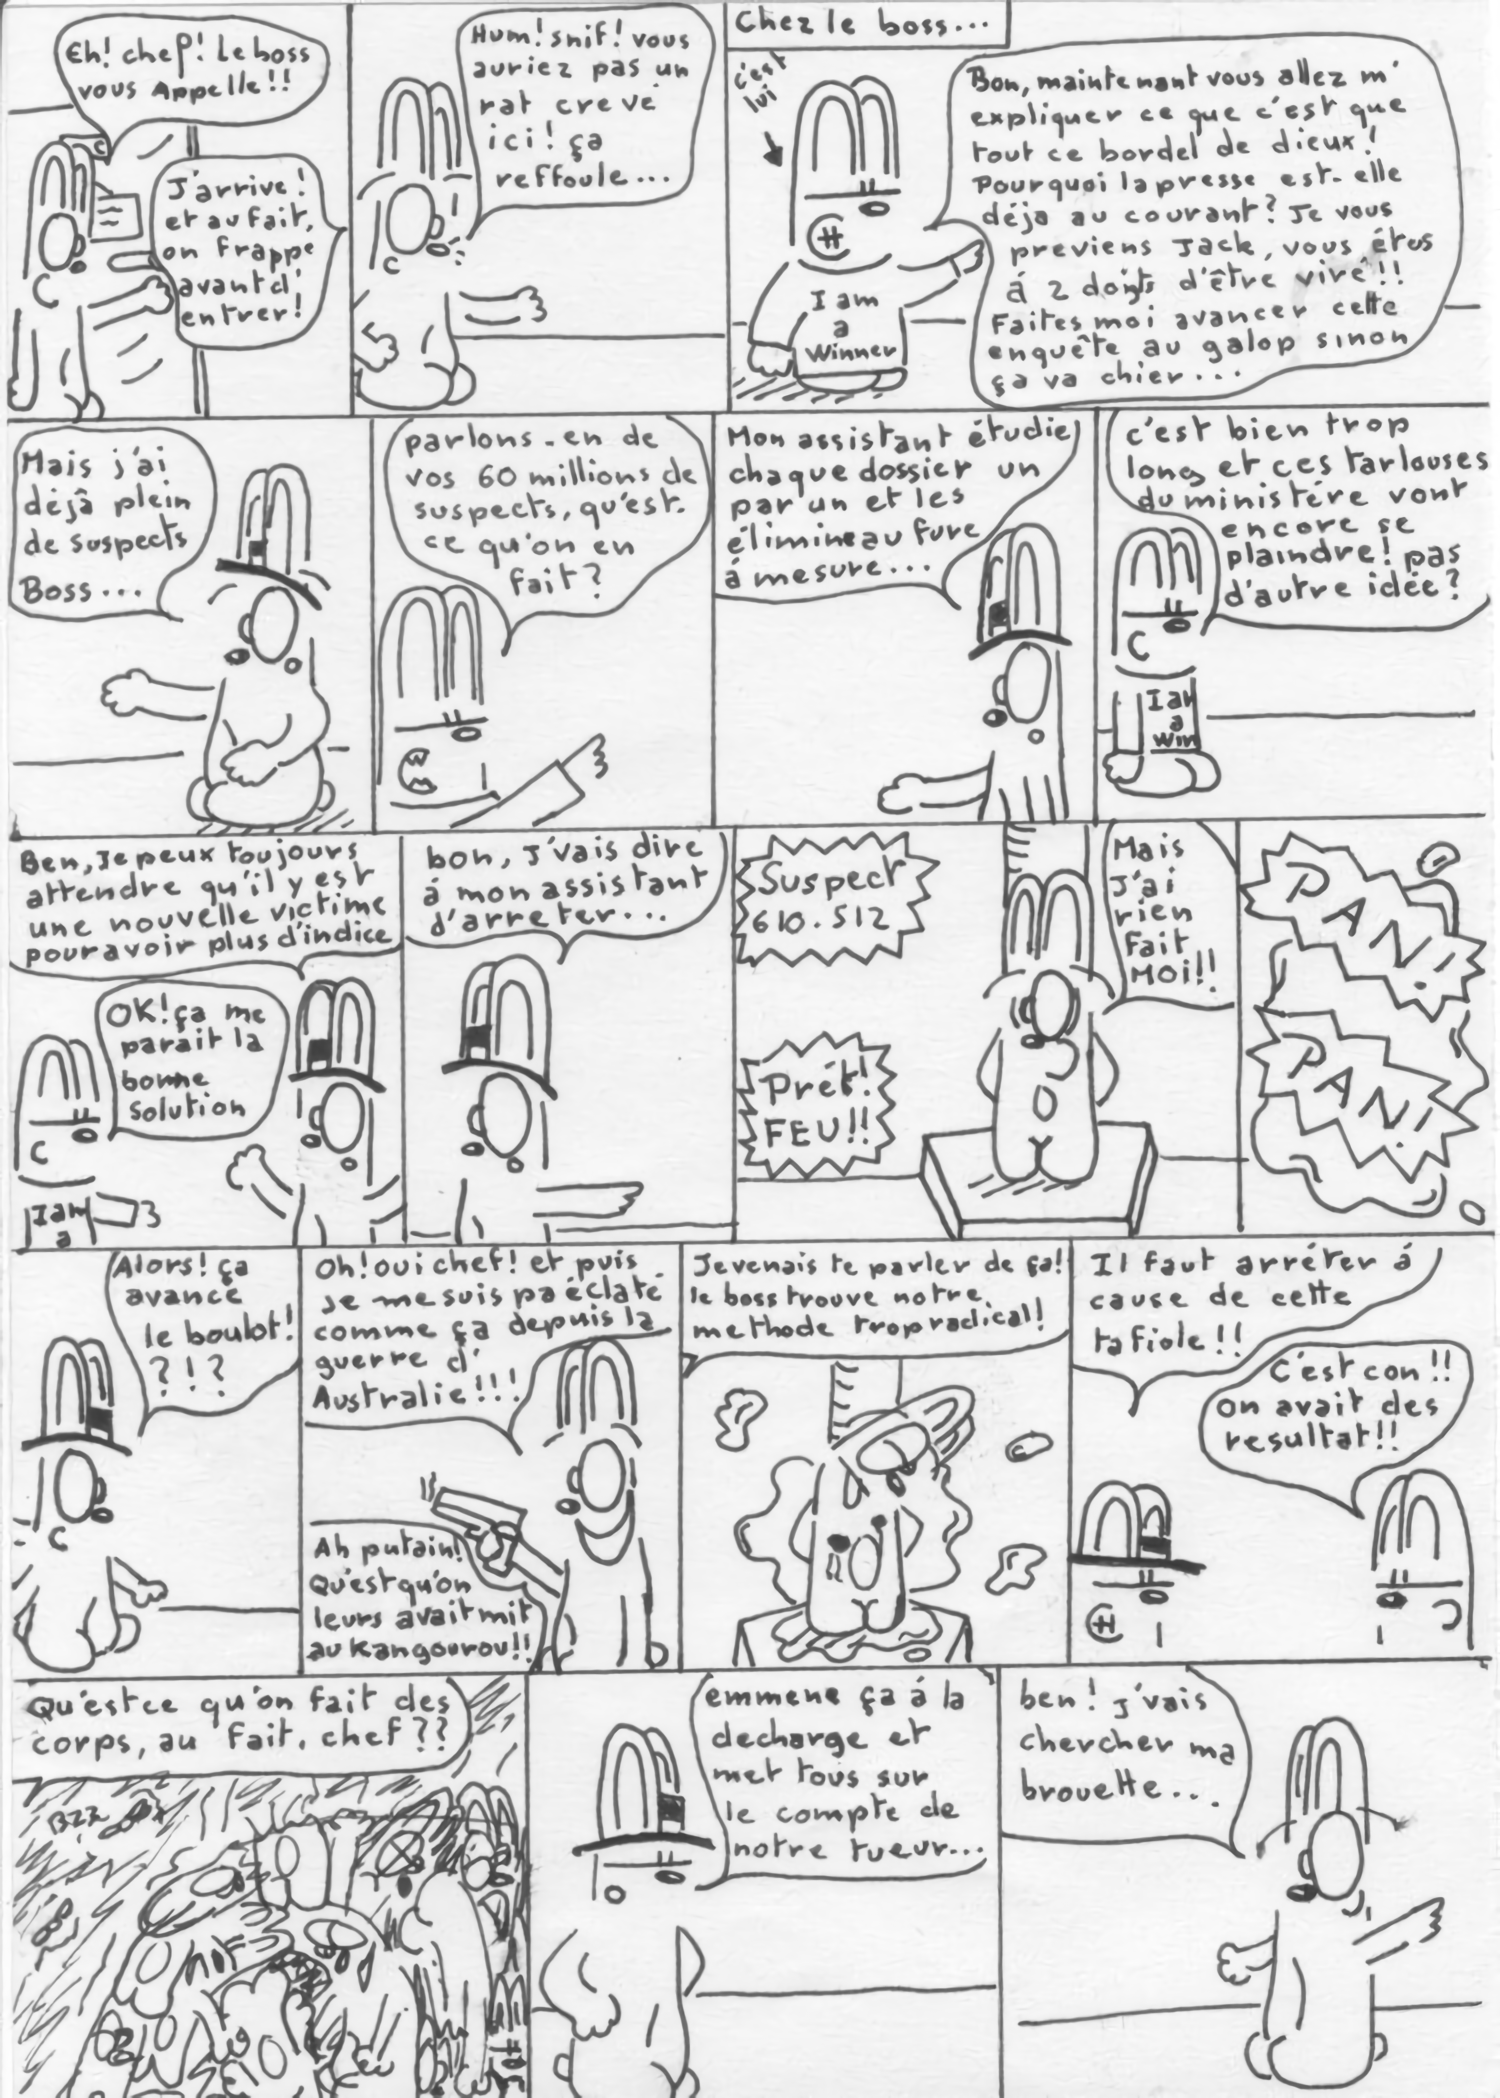 Eh! chef! Le boss
vous Appelle!!
J'arrive!
et au fait,
on frappe
avant d'
entrer!
Hum! snif! vous
auriez pas un
rat crevé
ici! ça
reffoule...
Chez le boss...
c'est
lui
Bon, maintenant vous allez m'
expliquer ce que c'est que
tout ce bordel de dieux!
Pourquoi la presse est-elle
déja au courant? Je vous
previens Jack, vous étes
á 2 doigts d'être viré!!
Faites moi avancer cette
enquête au galop sinon
ça va chier...
I am
a
Winner
Mais j'ai
déjâ plein
de suspects
Boss...
parlons-en de
vos 60 millions de
suspects, qu'est-
ce qu'on en
fait?
Mon assistant étudie
chaque dossier un
par un et les
élimine au fure
á mesure...
c'est bien trop
long et ces tarlouses
du ministére vont
encore se
plaindre! pas
d'autre idée?
I am
a
Win
Ben, Je peux toujours
attendre qu'il y est
une nouvelle victime
pour avoir plus d'indice
OK! ça me
parait la
bonne
solution
I am
a
bon, j'vais dire
á mon assistant
d'arreter...
Suspect
610.512
Prét!
FEU!!
Mais
J'ai
rien
fait
MOI!!
PAN!
PAN!
Alors! ça
avance
le boulot!
?!?
Oh! oui chef! et puis
je me suis pa éclaté
comme ça depuis la
guerre d'
Australie!!!
Ah putain!
Qu'est qu'on
leurs avait mit
au Kangourou!!
Je venais te parler de ça!
le boss trouve notre
methode trop radical!
Il faut arréter á
cause de cette
tafiole!!
C'est con!!
on avait des
resultat!!
Qu'est ce qu'on fait des
corps, au fait, chef??
BZZ
emmene ça á la
decharge et
met tous sur
le compte de
notre tueur...
ben! j'vais
chercher ma
brouette...